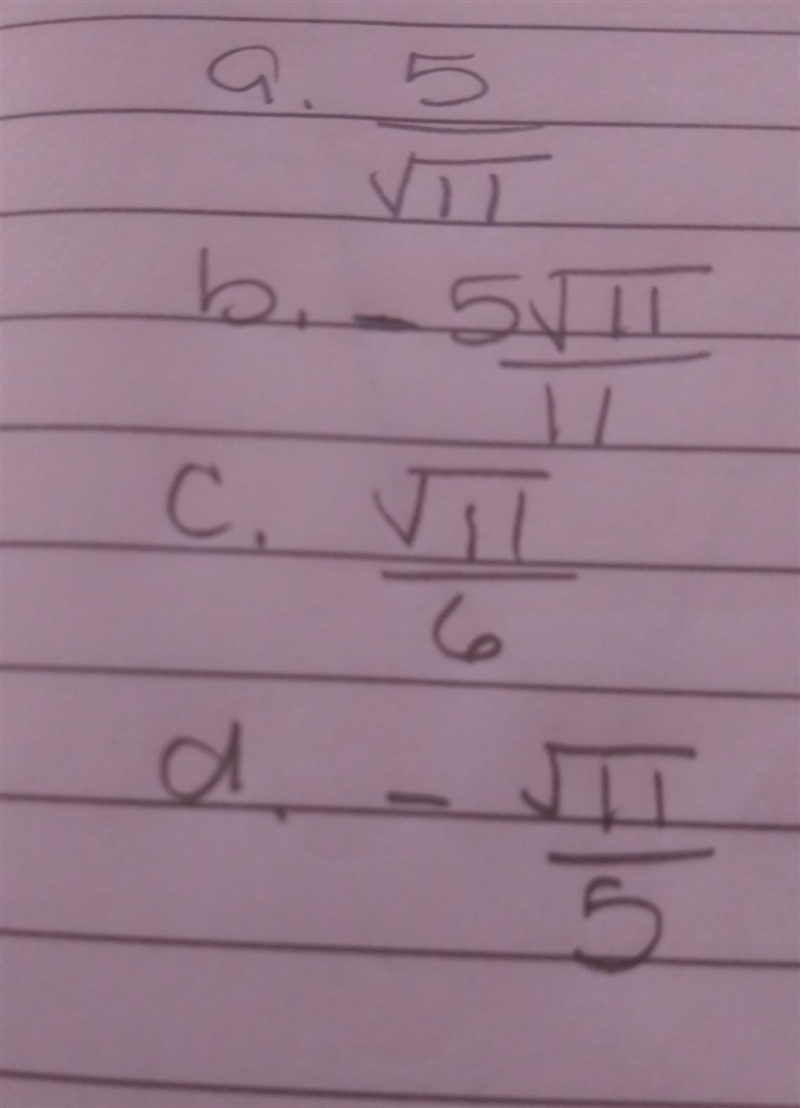 a. 5/√11
b. - 5√11/11
c. √11/6
d. - √11/5